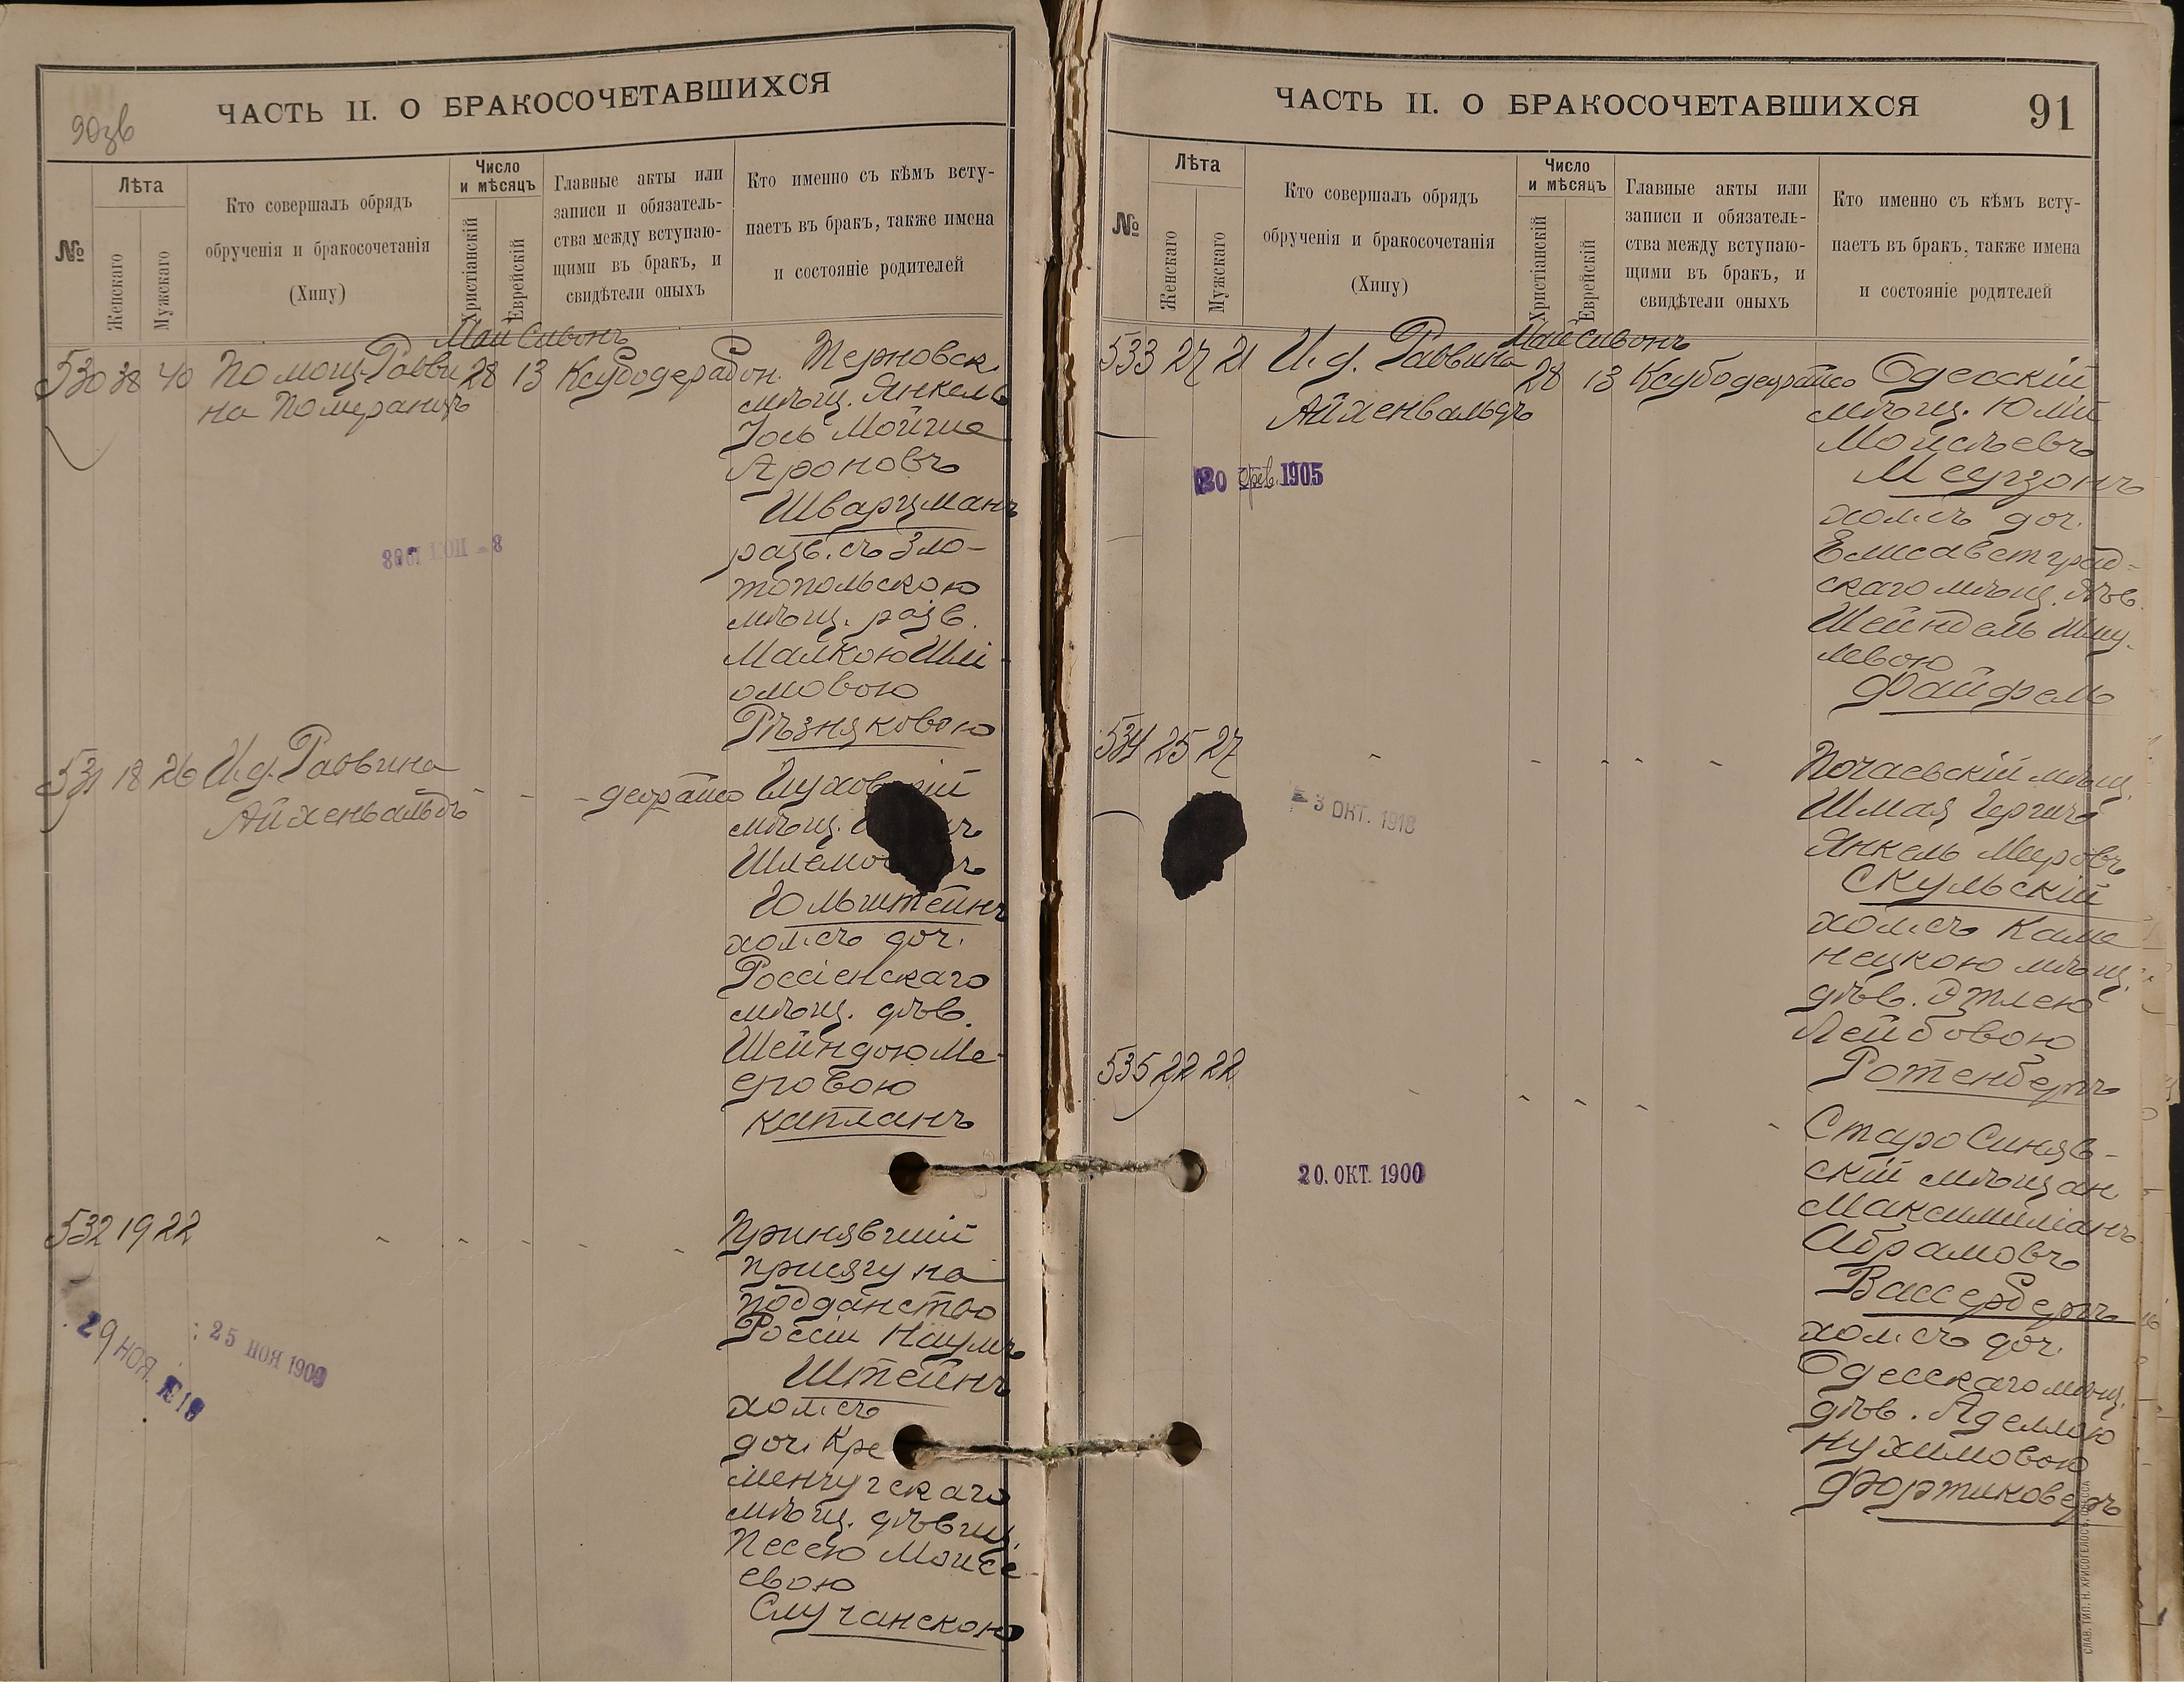 90зв
ЧАСТЬ II. О БРАКОСОЧЕТАВШИХСЯ
№
Лѣта
Женскаго
Мужскаго
Кто совершалъ обрядъ
обрученія и бракосочетанія
(Хипу)
Число
и мѣсяцъ
Христіанскій
Еврейскій
Главные акты или
записи и обязатель-
ства между вступаю-
щими въ бракъ, и
свидѣтели оныхъ
Кто именно съ кѣмъ всту-
паетъ въ бракъ, также имена
и состояніе родителей
Май Сивонъ
530 38 40 Помощ. Равви 28 13
на Померанцъ
Перновск.
мѣщ. Янкель
Іось Мойше
Ароновъ
Шварцманъ
разв. съ Зло-
топольскою
мѣщ. разв.
Малкою Шлі-
омовою
Рѣзняковою
531 18 26 И.д. Раввина
Айхенвальдъ
мѣщ.
Гольштейнъ
хол. съ доч.
Россіенскаго
мѣщ. дѣв.
Шейндою Ме-
еровою
Капланъ
532 19 22
Принявшій
присягу на
подданство
Россіи Наумъ
Штейнъ
хол. съ
доч. Кре
менчугскаго
мѣщ. дѣвиц.
Песею Моисе-
евою
Случанскою
25 НОЯ 1900
29 НОЯ
ЧАСТЬ II. О БРАКОСОЧЕТАВШИХСЯ
91
№
Лѣта
Женскаго
Мужскаго
Кто совершалъ обрядъ
обрученія и бракосочетанія
(Хипу)
Число
и мѣсяцъ
Христіанскій
Еврейскій
Главные акты или
записи и обязатель-
ства между вступаю-
щими въ бракъ, и
свидѣтели оныхъ
Кто именно съ кѣмъ всту-
паетъ въ бракъ, также имена
и состояніе родителей
Май Сивонъ
533 27 21 И.д. Раввина 28 13
Айхенвальдъ
20 фев. 1905
Одесскій
мѣщ. Юлій
Моисѣевъ
Меерзонъ
хол. съ доч.
Елисаветград-
скаго мѣщ. дѣв.
Шейндель Шму-
левою
Файфель
534 25 27
3 ОКТ. 1918
Почаевскій мѣщ.
Шмая Гершъ
Янкель Мееровъ
Скульскій
хол. съ Каме
нецкою мѣщ.
дѣв. Этлею
Лейбовою
Ротенбергъ
535 22 22
20. ОКТ. 1900
Старо Синяв-
скій мѣщан.
Максимиліанъ
Абрамовъ
Вассербергъ
хол. съ доч.
Одесскаго мѣщ.
дѣв. Аделлою
Нухимовою
СЛАВ. ТИП. Н. ХРИСОГЕЛОСЪ, ОДЕССА